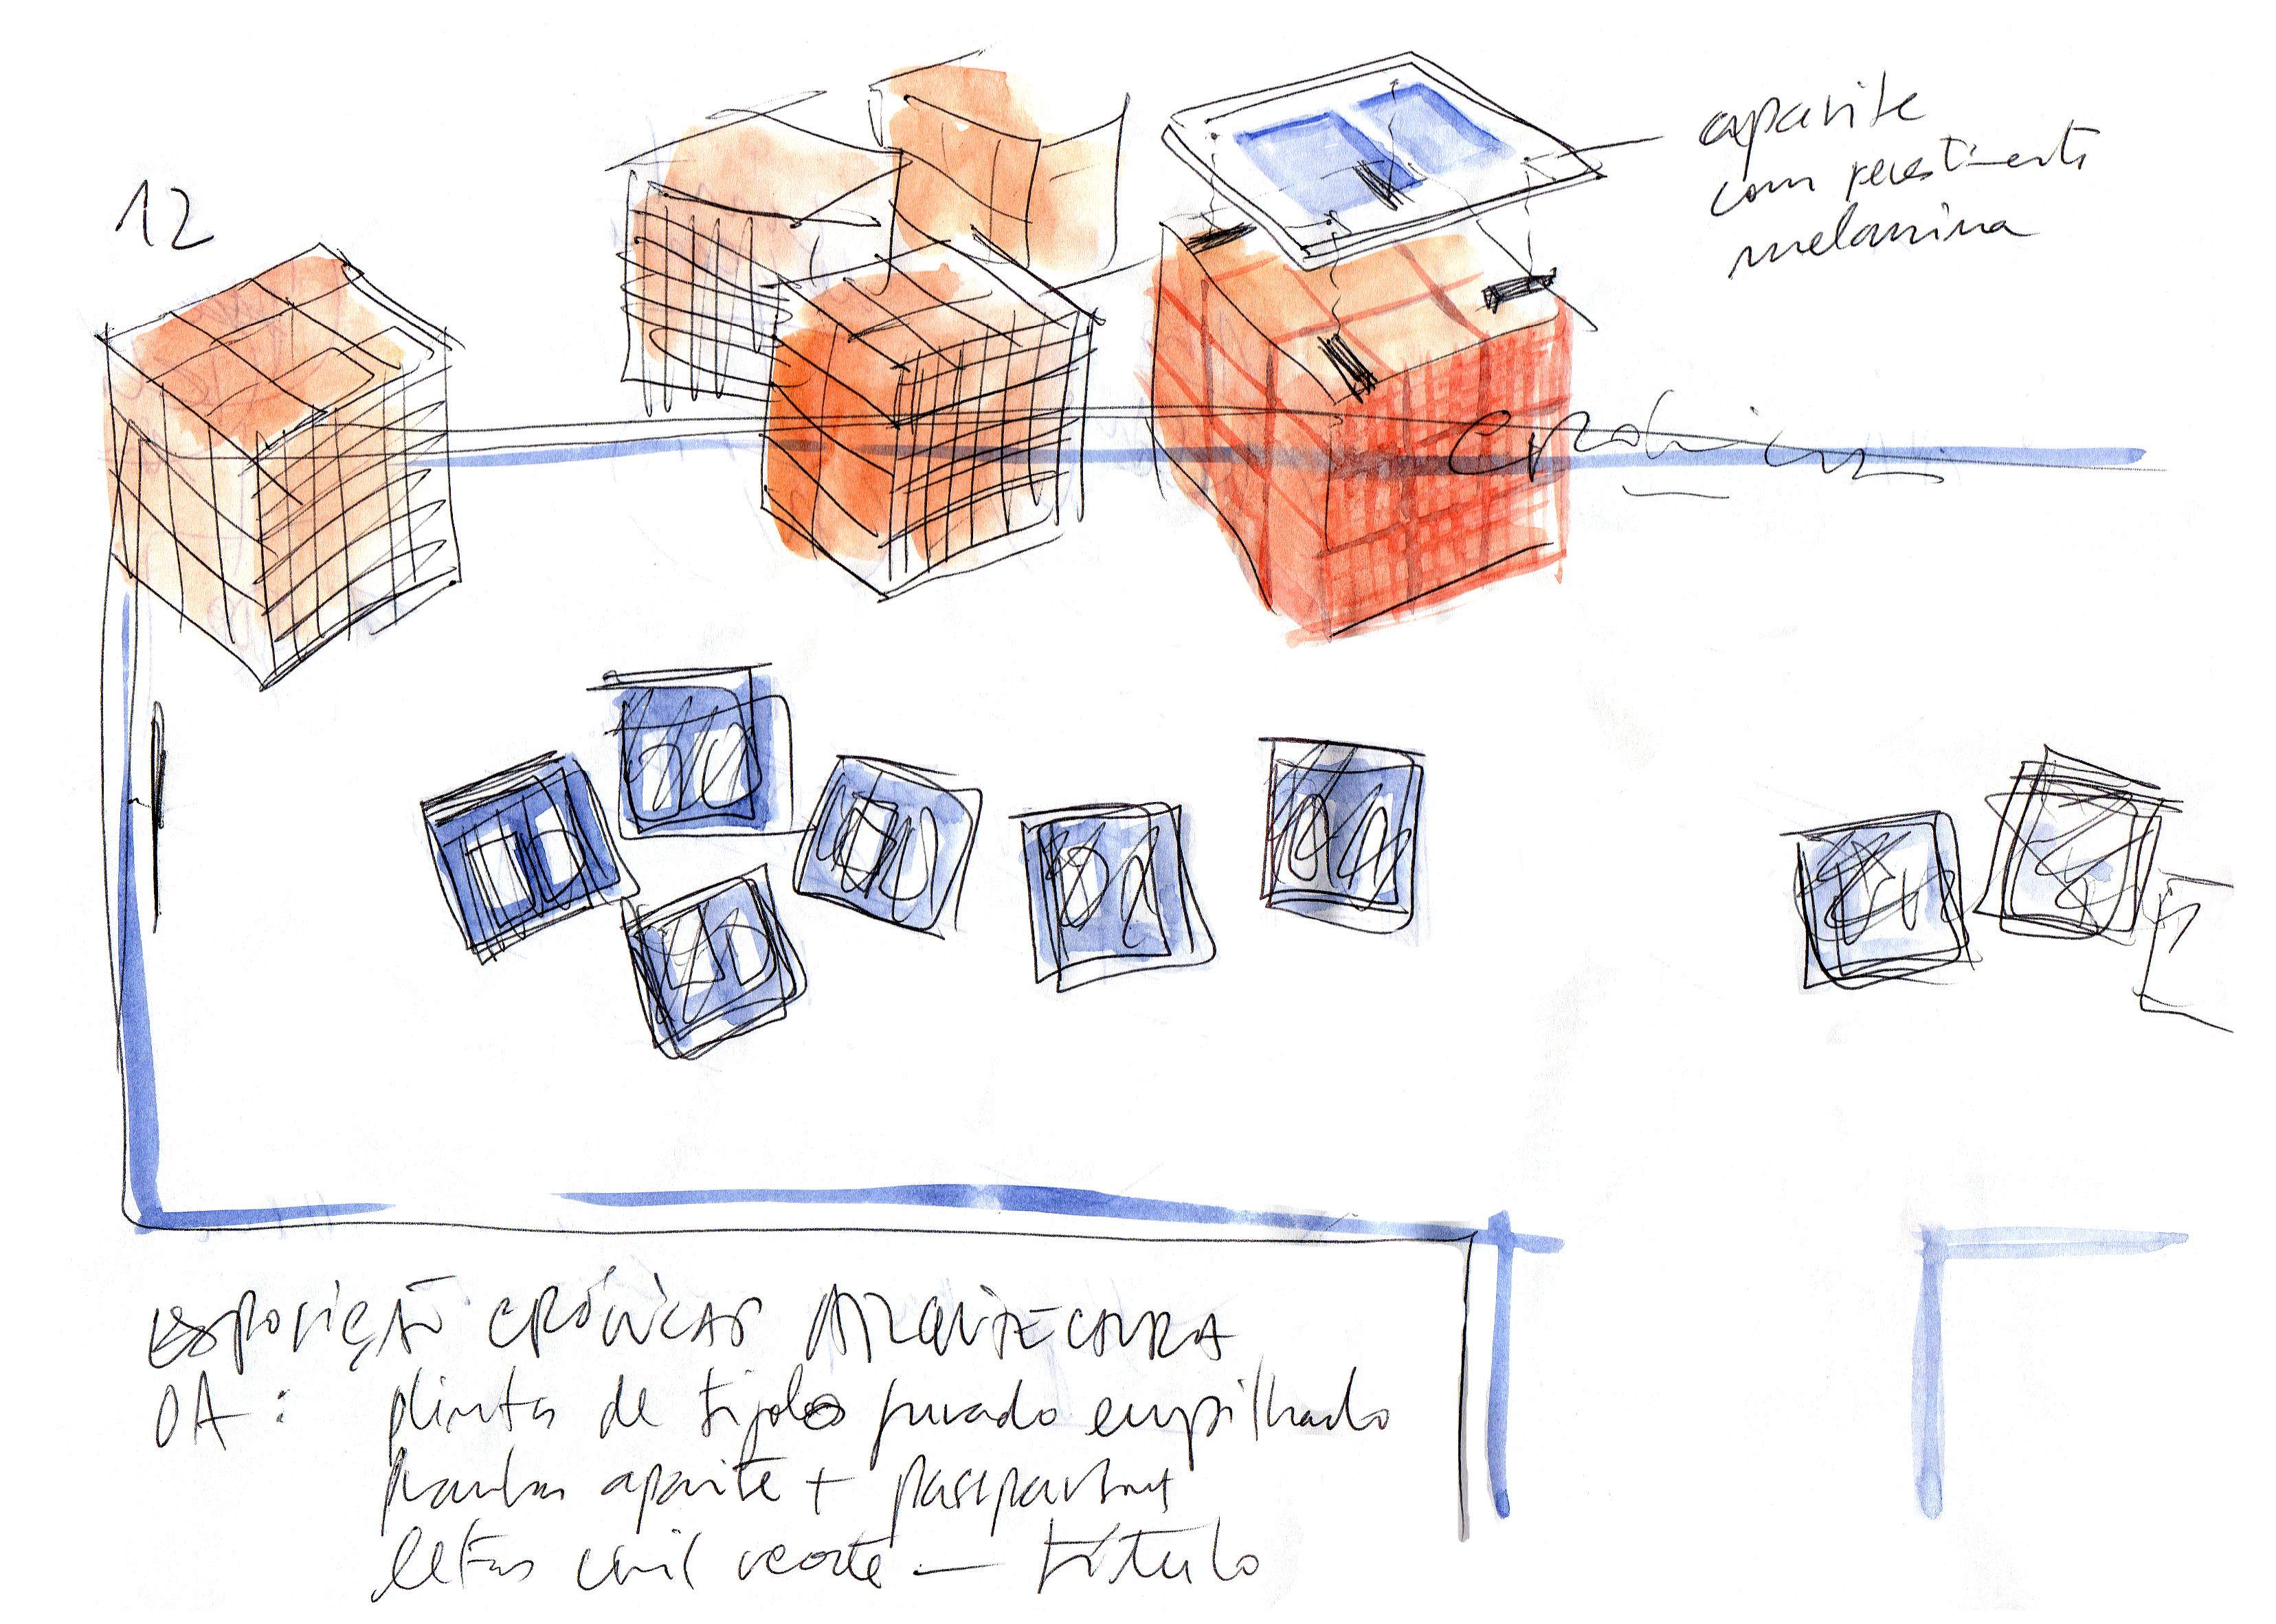 12
aparite
com revestimento
melamina
crónicas
EXPOSIÇÃO CRÓNICAS ARQUITECTURA
OA: plintos de tijolo furado empilhado
aparite + passpartout
letras vinil recorte — título